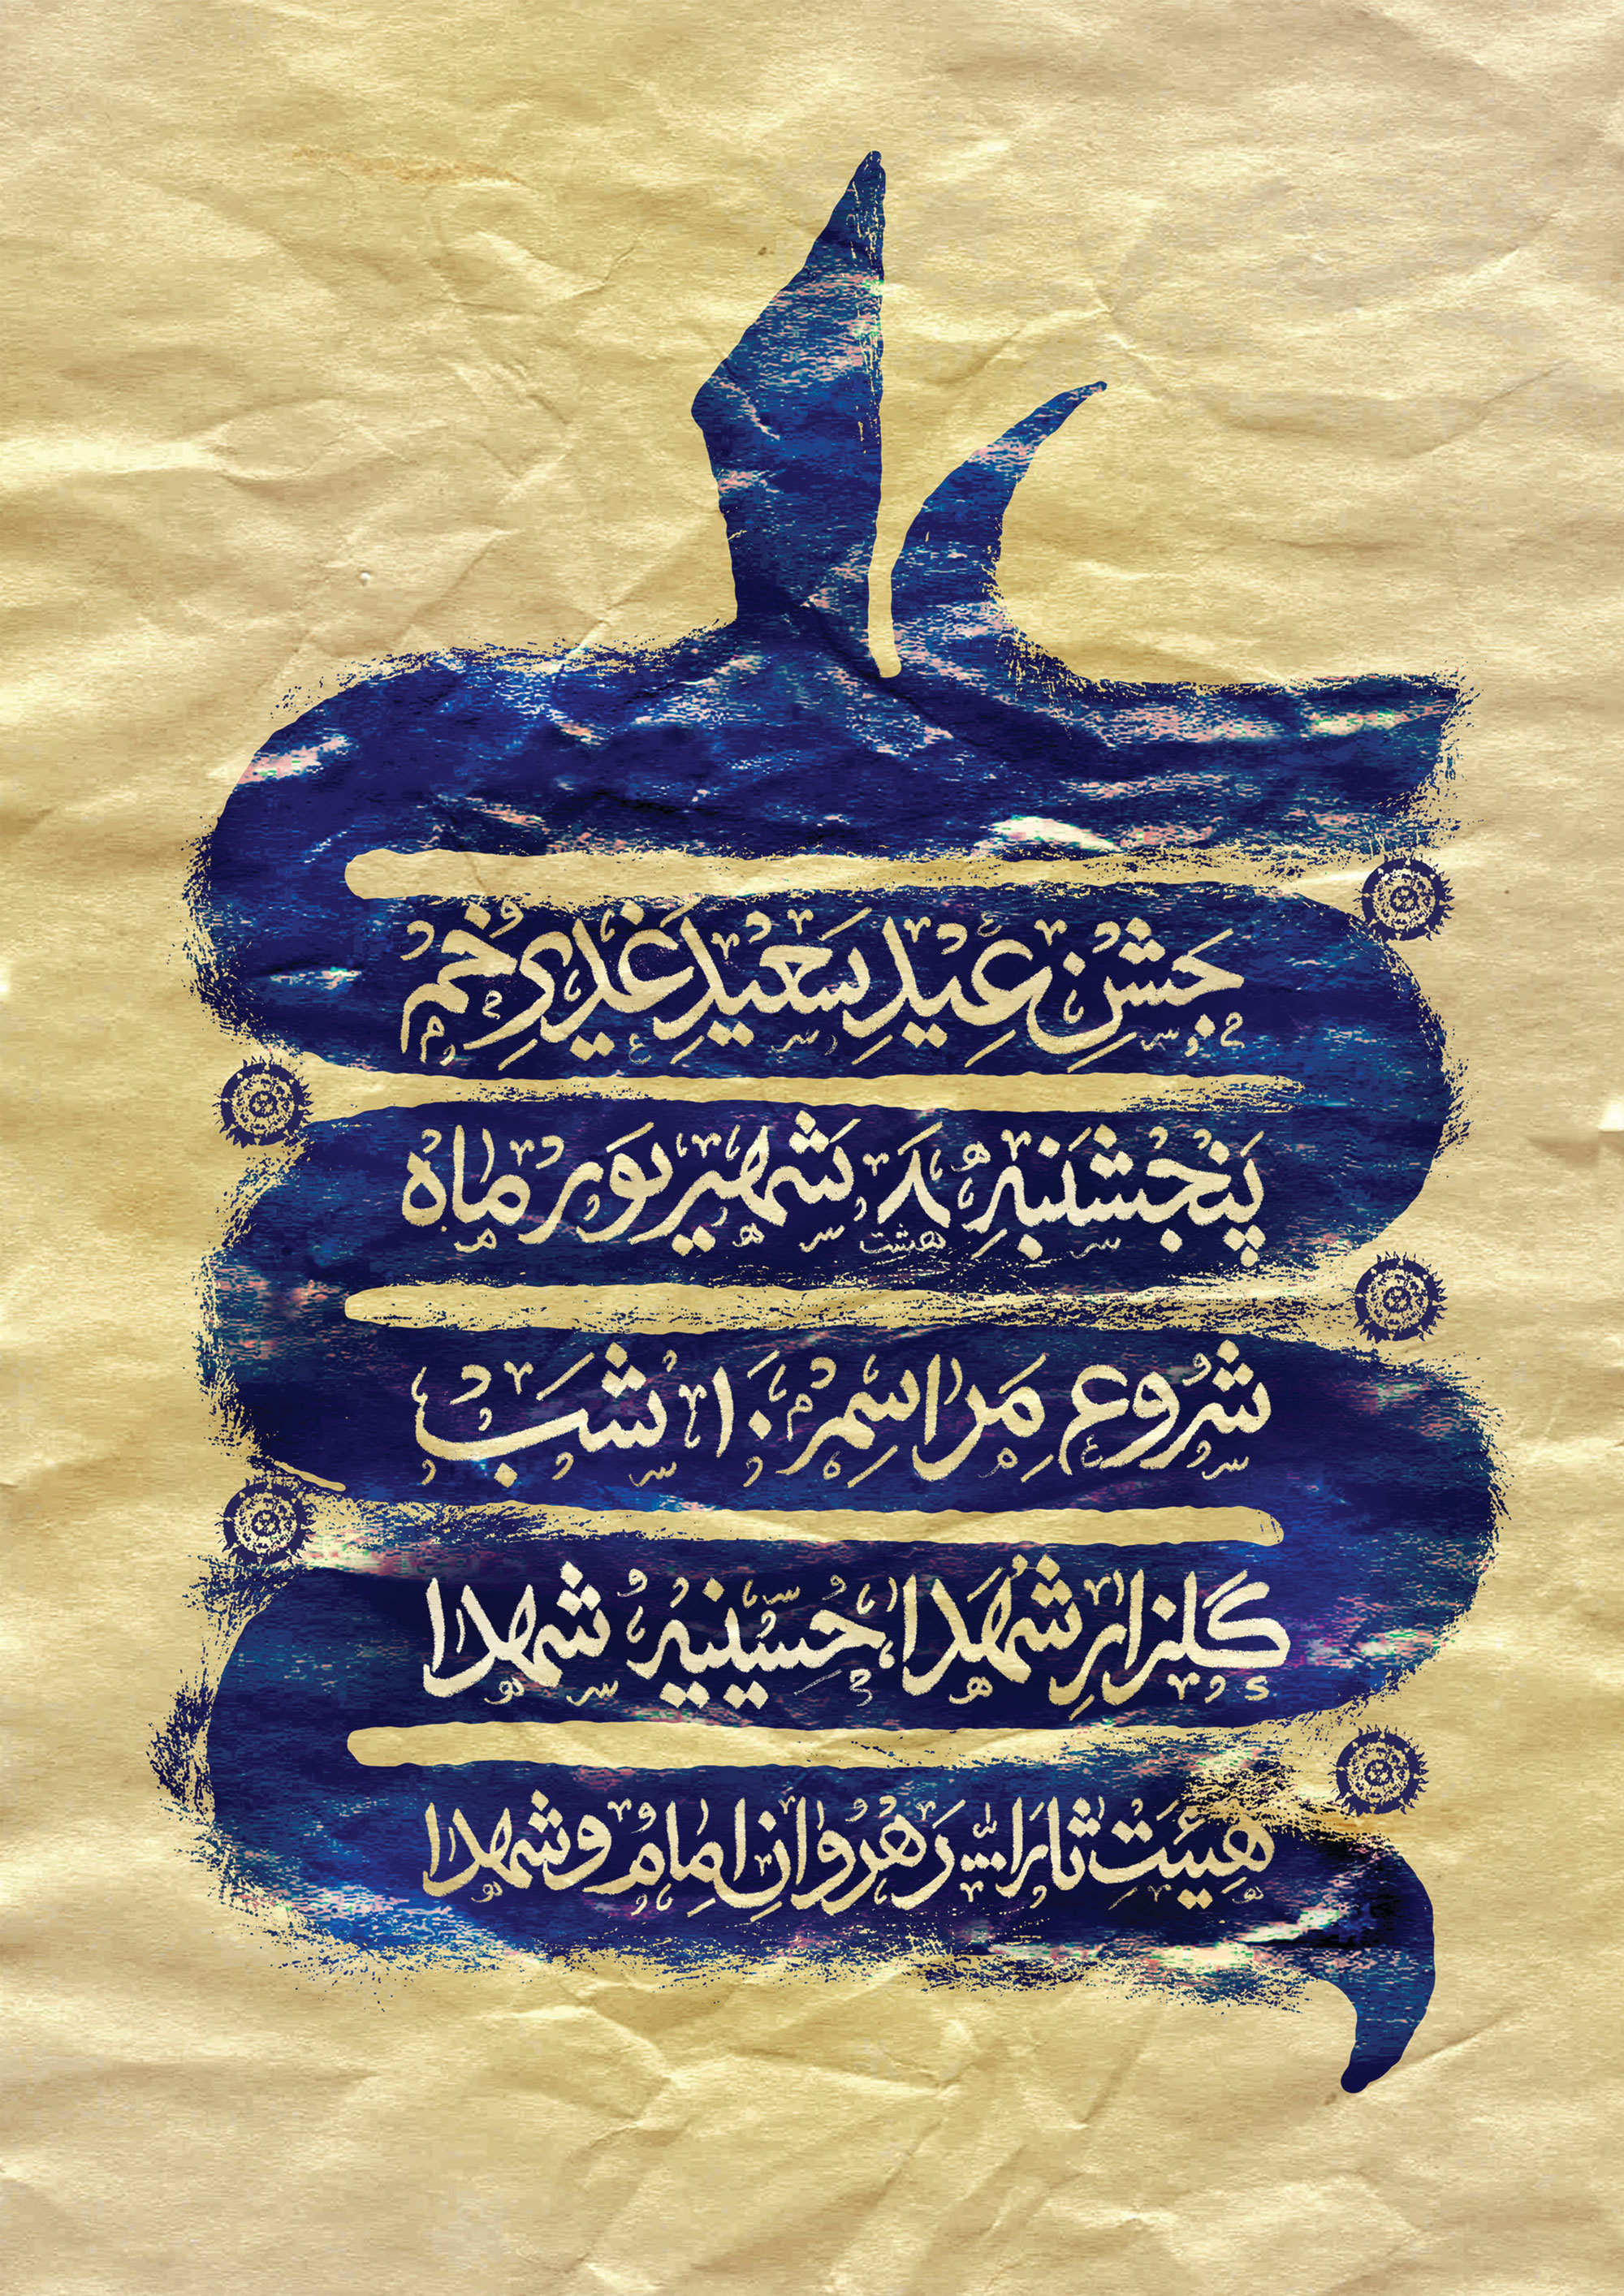 جَشنِ عِیدِ سَعیدِ غَدیرِ خُم
پَنجشَنبهِ ۸ شَهریوَر ماه
هشت
شُروعِ مَراسِم ۱۰ شَب
گلزارِ شُهَدا، حُسینیه شهدا
هِیئَتِ ثارَالله رَهرُوانِ اِمام و شهدا